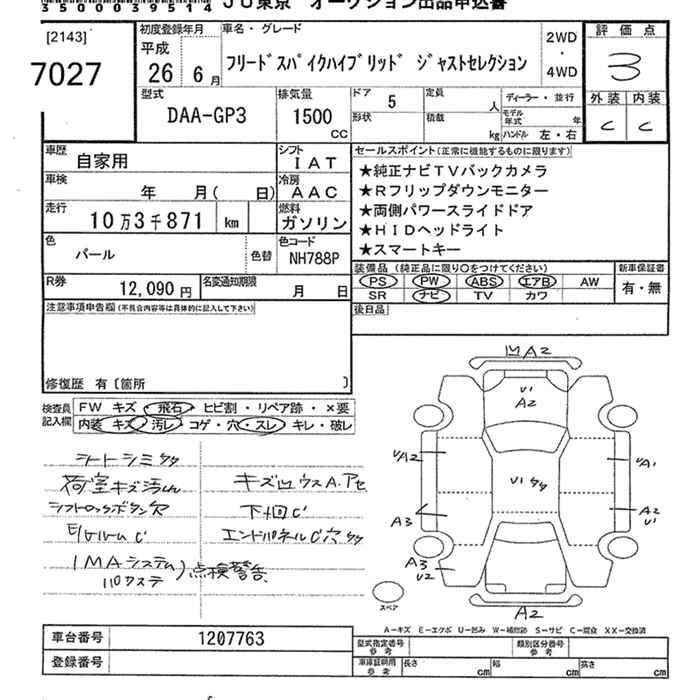 35000039514 JU東京 オークション出品申込書
[2143]
7027
初度登録年月
平成
26 6月
車名・グレード
フリードスパイクハイブリッド ジャストセレクション
2WD
・
4WD
評価点
3
外装 内装
C C
型式
DAA-GP3
排気量
1500
CC
ドア 5
形状
定員 人
積載 kg
ディーラー・並行
モデル年式 年
ハンドル 左・右
車歴 自家用
シフト
IAT
車検 年 月( 日)
冷房
AAC
走行 10万3千871 km
燃料
ガソリン
色 パール 色替
色コード
NH788P
R券 12,090円
名変通知期限 月 日
セールスポイント(正常に機能するものに限ります)
★純正ナビTVバックカメラ
★Rフリップダウンモニター
★両側パワースライドドア
★HIDヘッドライト
★スマートキー
装備品(純正品に限り○をつけてください)
新車保証書
PS PW ABS エアB AW
有・無
SR ナビ TV カワ
後日品
注意事項申告欄(不具合内容等は具体的に記入して下さい)
修復歴 有〔箇所 〕
検査員
記入欄
FW キズ・飛石・ヒビ割・リペア跡・×要
内装 キズ・汚レ・コゲ・穴・スレ・キレ・破レ
シートシミ
荷室キズ汚れ
シフトロックボタン穴
Eルーム C
IMAシステム
点検警告
キズ凹ウスA.アセ
下回C
エンドパネルC穴
凹A2
U1
A2
UA2
UA1
U1
A3
A2
U1
A3
U2
A2
スペア
A-キズ E-エクボ U-凹み W-補修跡 S-サビ C-腐食 XX-交換済
車台番号 1207763
登録番号
型式指定番号
参考
類別区分番号
参考
車庫証明用
参考
長さ cm
幅 cm
高さ cm